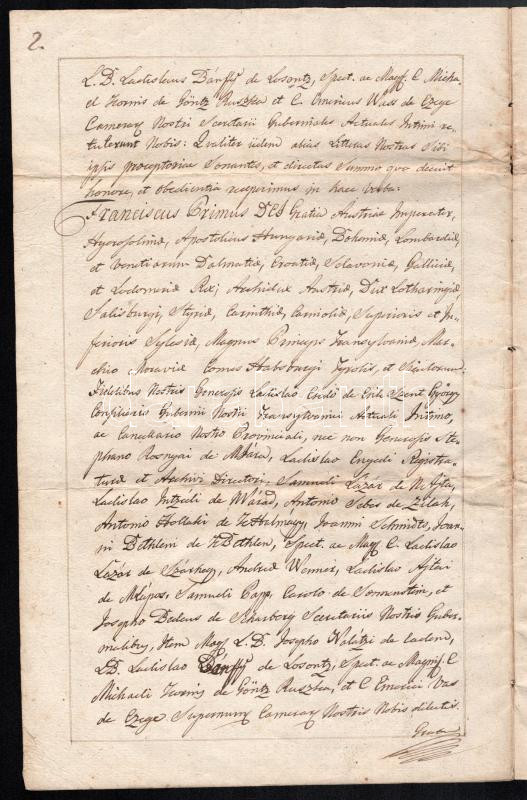 2.
L. B. Ladislaus Bánffy de Losontz, Spect. ac Magf. C. Micha-
el Tornis de Göntz Ruszka et C. Emericus Wass de Czege
Cameraes Nostri Secretarii Guberniales Actuales Intimi re-
tulerunt Nobis: Qualiter iidem alias Litteras Nostras Sibi
ipsis praeceptorias Sonantes, et directas Summo quo decuit
honore, et obedientia recepissent in haec verba:
Franciscus Primus DEI Gratia Austriae Imperator,
Hyerosolimae, Apostolicus Hungariae, Bohemiae, Lombardiae,
et Venetiarum Dalmatiae, Croatiae, Sclavoniae, Galliciae,
et Lodomeriae Rex; Archidux Austriae, Dux Lotharingiae
Salisburgi, Styriae, Carinthiae, Carnioliae, Superioris et In-
ferioris Sylesiae, Magnus Princeps Transylvaniae, Mar-
chio Moraviae Comes Habsburgi Tyrolis, et Siculorum.
Fidelibus Nostris Generosis Ladislao Cserei de Csik Szent György
Consiliario Gubernii Nostri Transylvanici Actuali Intimo,
ac Cancellario Nostro Provinciali, nec non Generosis Ste-
phano Rosnyai de Ladislao Enyedi Registra-
turae et Archivi Directori; Samueli Lázár de N. Ajta,
Ladislao Intzedi de Várad, Antonio Sebes de Zilah,
Antonio Hollaki de KisHalmagy, Joanni Schmidts, Joan-
ni Bethlen de Bethlen, Spect. ac Magf. C. Ladislao
Lázár de Szárhegy, Andreae Wenner, Ladislao Ajtai
de Samueli Papp, Carolo de Sonnenstein, et
Josepho Bedeus de Scharberg Secretariis Nostris Guber-
nialibus, Item Magf. L. B. Josepho Naláczi de eadem,
L.B. Ladislao Bánffy de Losontz, Spect. ac Magnif. C.
Michaeli Tornis de Göntz Ruszka, et C. Emerico Vas
de Czege Supernum. Cameraes Nostris Nobis dilectis.
Gratia